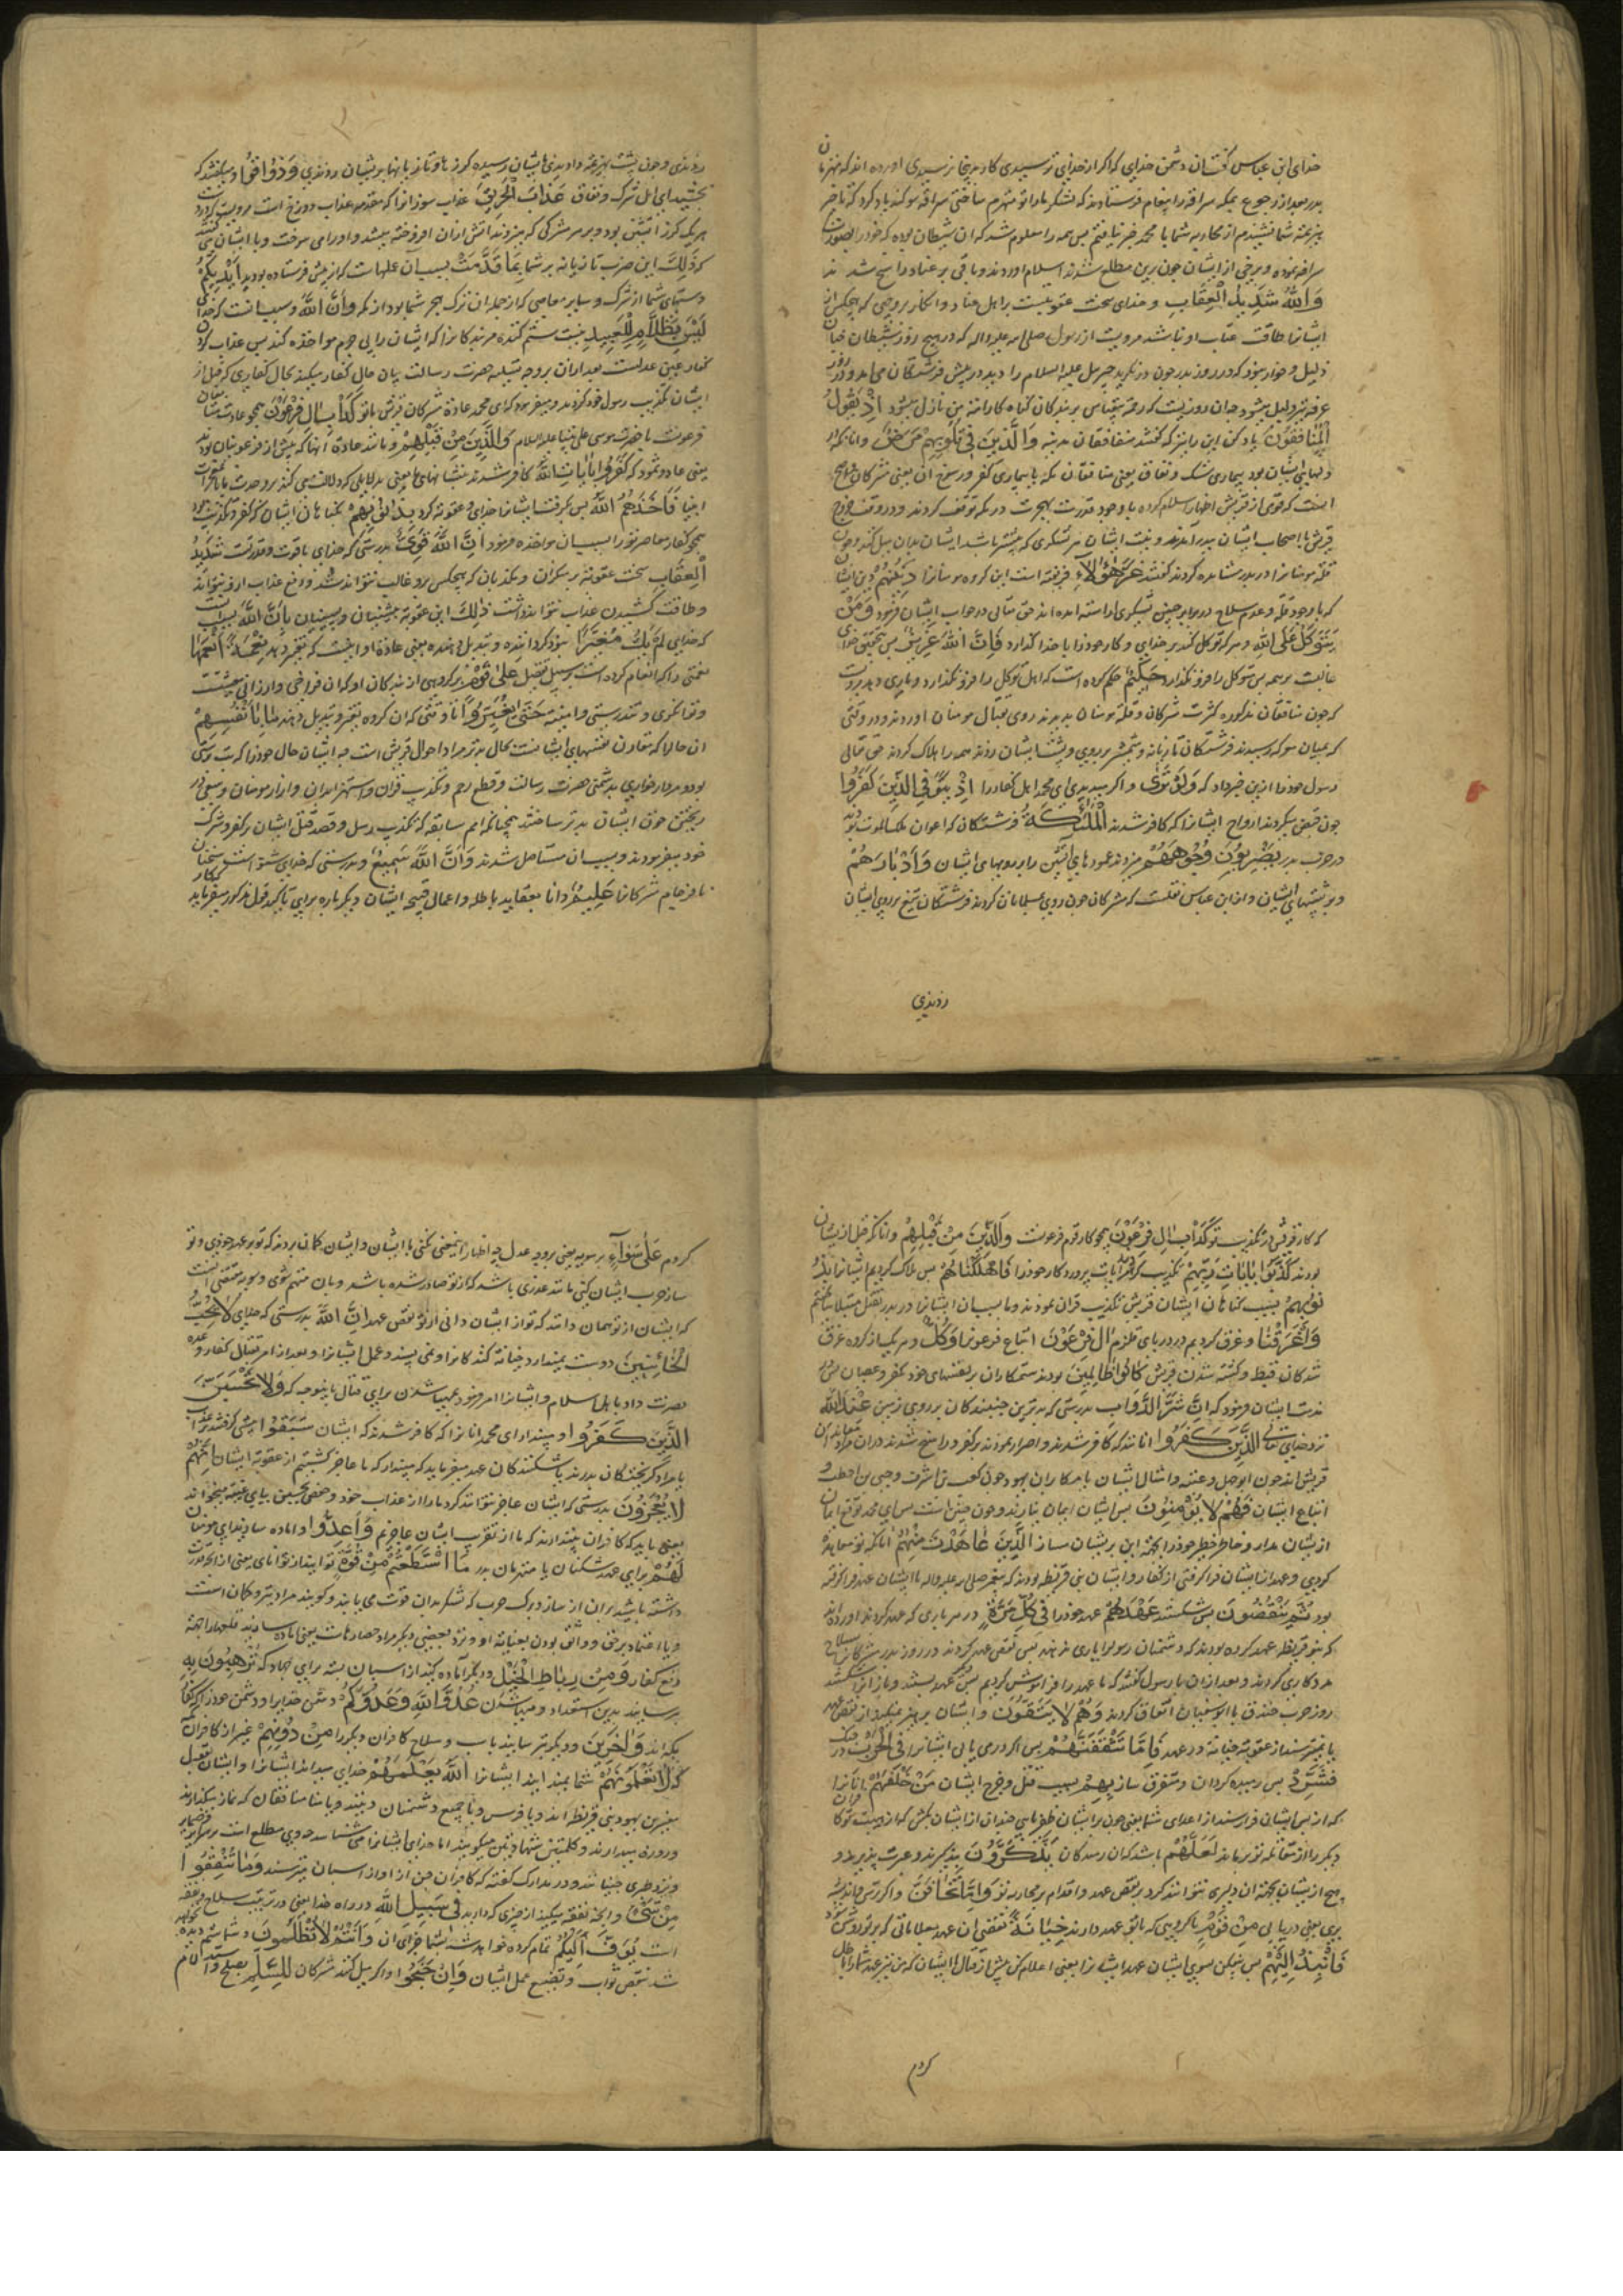 خدای ابن عباس گفت ان دشمن خدای که اگر از خدای ترسیدی کار بدینجا نرسیدی اورده اند که منهزمان
بدر بعد از رجوع بمکه سراقه را پیغام فرستادند که لشکر ما را تو منهزم ساختی سراقه سوکند یاد کرد که تا خبر
هزیمة شما نشنیدم از محاربه شما با محمد خبر نیافتم پس همه را معلوم شد که ان شیطان بوده که خود را بصورت
سراقه نموده و برخی از ایشان چون برین مطلع شدند اسلام اوردند و باقی بر عناد راسخ شدند
وَاللّٰهُ شَدِيدُ الْعِقَابِ و خدای سخت عقوبتست بر اهل عناد و انکار بر وجهی که هیچکس از
ایشانرا طاقت عقاب او نباشد مرویست از رسول صلی الله علیه واله که در هیچ روز شیطان چنان
ذلیل و خوار نبود که در روز بدر چون در نکرید جبرئیل علیه السلام را دید در پیش فرشتکان می امد و در روز
عرفه نیز ذلیل میشود چه ان روزیست که رحمة بیقیاس بر بندکان کناه کار امة من نازل میشود اِذْ يَقُولُ
الْمُنَافِقُونَ یاد کن این را نیز که کفتند منافقان مدینه وَالَّذِينَ فِي قُلُوبِهِمْ مَرَضٌ وانانکه در
دلهای ایشان بود بیماری شک و نفاق یعنی منافقان مکه یا بیماری کفر و رسوخ ان یعنی مشرکان
اینست که قومی از قریش اختیار اسلام کرده با وجود قدرت بهجرت در مکه توقف کردند و در وقت خروج
قریش با اصحاب ایشان ببدر آمدند و نیت ایشان
قلة مومنانرا در بدر مشاهده کردند کفتند غَرَّ هٰؤُلَاءِ فریفته است این کروه مومنانرا دِينُهُمْ دین ایشان
که با وجود قلة و عدم سلاح در برابر چنین لشکری اراسته امده اند حق تعالی در جواب ایشان فرمود وَمَنْ
يَتَوَكَّلْ عَلَى اللّٰهِ و هر که توکل کند بر خدای و کار خود را با خدا کذارد فَاِنَّ اللّٰهَ عَزِيزٌ پس بتحقیق خدای
غالبست بر همه پس متوکل را فرو نکذارد حَكِيمٌ حکم کرده است که اهل توکل را فرو نکذارد و یاری دهد مرویست
که چون منافقان مذکوره کثرت مشرکان و قلة مومنان بدیدند روی بقتال مومنان اوردند و در وقتی
که بمیان معرکه رسیدند فرشتکان تازیانه و شمشیر بر روی و پشت ایشان زدند همه را هلاک کردند حق تعالی
رسول خود را ازین خبر داد که وَلَوْ تَرٰى و اکر ببینی ای محمد اهل کفار را اِذْ يَتَوَفَّى الَّذِينَ كَفَرُوا
چون قبض میکردند ارواح ایشانرا که کافر شدند الْمَلٰئِكَةُ فرشتکان که اعوان ملک الموت بودند
در حرب بدر يَضْرِبُونَ وُجُوهَهُمْ میزدند عمودهای آتشین را بر رویهای ایشان وَاَدْبَارَهُمْ
و بر پشتهای ایشان و از ابن عباس نقلست که مشرکان چون روی بمسلمانان کردند فرشتکان تیغ بر روی ایشان
زدندی
زدندی و چون پشت بهزیمة دادندی بایشان رسیده کرزها و تازیانها بر پشت ایشان زدندی وَذُوقُوا و میکفتند که
بچشید ای اهل شرک و نفاق عَذَابَ الْحَرِيقِ عذاب سوزانرا که مقدمه عذاب دوزخ است مرویست که در دست
هریک کرزی اتشین بود و بر سر مشرکی که میزدند اتش از ان افروخته میشد و او را می سوخت و با ایشان می کفتند
که ذٰلِكَ این ضرب تازیانه بر شما بِمَا قَدَّمَتْ بسبب ان عملهاست که از پیش فرستاده بودید اَيْدِيكُمْ
دستهای شما از شرک و سایر معاصی که از جمله ان ترک هجر شما بود از مکه وَاَنَّ اللّٰهَ و بسبب انست که خدای
لَيْسَ بِظَلَّامٍ لِلْعَبِيدِ نیست ستم کننده مر بندکانرا که ایشان را بی جرم مواخذه کند پس عذاب کردن
کفار عین عدلست بعد از ان بر وجه تسلیه حضرت رسالت بیان حال کفار میکند بحال کفاری که قبل از
ایشان تکذیب رسول خود کردند و میفرمود که ای محمد عادة مشرکان قریش با تو كَدَاْبِ اٰلِ فِرْعَوْنَ همچو عادت متابعان
فرعونست با حضرت موسی علی نبینا علیه السلام وَالَّذِينَ مِنْ قَبْلِهِمْ و مانند عادة آنها که پیش از فرعونیان بودند
یعنی عاد و ثمود که كَفَرُوا بِاٰيَاتِ اللّٰهِ کافر شدند بنشانهای خدا یعنی بدلایلی که دلالت می کند بر وحدت ما یا بمعجزات
انبیا فَاَخَذَهُمُ اللّٰهُ پس بکرفت ایشانرا خدای و عقوبة کرد بِذُنُوبِهِمْ بکناهان ایشان که کفر و تکذیبست
همچو کفار معاصر تو را بسبب ان مواخذه فرمود اِنَّ اللّٰهَ قَوِيٌّ بدرستی که خدای با قوت و قدرتست شَدِيدُ
الْعِقَابِ سخت عقوبة بر منکران و مکذبان که هیچکس برو غالب نتواند شد و دفع عذاب ازو نتواند
و طاقت کشیدن عذاب نتواند داشت ذٰلِكَ این عقوبة پیشینیان و پسینیان بِاَنَّ اللّٰهَ بسبب انست
که خدای لَمْ يَكُ مُغَيِّرًا نبود کرداننده و تبدیل دهنده یعنی عادة او اینست که تغیر ندهد نِعْمَةً اَنْعَمَهَا
نعمتی را که انعام کرده است بر سبیل تفضل عَلٰى قَوْمٍ بر کروهی از بندکان او که ان فراخی و ارزانی معیشتست
و توانکری و تندرستی و امنیة حَتّٰى يُغَيِّرُوا تا وقتی که ان کروه تغیر و تبدیل دهند مَا بِاَنْفُسِهِمْ
ان حال را که مقارن نفسهای ایشانست بحال بدتر مراد احوال قریش است چه ایشان حال خود را که بت پرستی
بود و مردار خواری بدشمنی حضرت رسالت و قطع رحم و تکذیب قران و استهزا بدان و ازار مومنان و سعی در
ریختن خون ایشان بدتر ساختند همچنانکه امم سابقه که تکذیب رسل و قصد قتل ایشان بر کفر و شرک
خود میفزودند و بسبب ان مستاصل شدند وَاَنَّ اللّٰهَ سَمِيعٌ و بدرستی که خدای شنواست سخنان
نافرجام مشرکانرا عَلِيمٌ دانا بعقاید باطله و اعمال قبیحه ایشان دیکر باره برای تاکید قول مذکور میفرماید
که کار قریش در تکذیب تو كَدَاْبِ اٰلِ فِرْعَوْنَ همچو کار قوم فرعونست وَالَّذِينَ مِنْ قَبْلِهِمْ وانانکه قبل از ایشان
بودند كَذَّبُوا بِاٰيَاتِ رَبِّهِمْ تکذیب کردند آیات پروردکار خود را فَاَهْلَكْنَاهُمْ پس هلاک کردیم ایشانرا بِذُ
نُوبِهِمْ بسبب کناهان ایشان قریش تکذیب قران نمودند و ما بسبب ان ایشانرا در بدر بقتل مبتلا ساختیم
وَاَغْرَقْنَا و غرق کردیم در دریای قلزم اٰلَ فِرْعَوْنَ اتباع فرعونرا وَكُلٌّ و هر یک از کروه غرق
شدکان قبط و کشته شدن قریش كَانُوا ظَالِمِينَ بودند ستمکاران بر نفسهای خود بکفر و عصیان پس در
مذمت ایشان فرمود که اِنَّ شَرَّ الدَّوَابِّ بدرستی که بدترین جنبندکان بر روی زمین عِنْدَ اللّٰهِ
نزد خدای تعالی الَّذِينَ كَفَرُوا انانند که کافر شدند و اصرار نمودند بر کفر و راسخ شدند در ان مراد معاندان
قریش اند چون ابوجهل و عتبه و امثال ایشان یا مکابران یهود چون کعب بن اشرف و حیی بن اخطب و
اتباع ایشان فَهُمْ لَا يُؤْمِنُونَ پس ایشان ایمان نیارند و چون چنین است پس ای محمد توقع ایمان
از ایشان مدار و خاطر خطیر خود را بجهة این پریشان مساز الَّذِينَ عَاهَدْتَ مِنْهُمْ آنانکه تو معاهده
کردی و عهد از ایشان فرا کرفتی از کفار و ایشان بنی قریظه بودند که پیغمبر صلی الله علیه واله با ایشان عهد فرا کرفته
بود ثُمَّ يَنْقُضُونَ پس شکستند عَهْدَهُمْ عهد خود را فِي كُلِّ مَرَّةٍ در هر باری که عهد کردند اورده اند
که بنو قریظه عهد کرده بودند که دشمنان رسول را یاری ندهند پس نقض عهد کردند در روز بدر مشرکانرا بسلاح
مدد کاری کردند و بعد از ان با رسول کفتند که ما عهد را فراموش کردیم پس دیگر عهد بستند و باز انرا شکستند
روز حرب خندق با ابوسفیان اتفاق کردند وَهُمْ لَا يَتَّقُونَ و ایشان پرهیز نمیکنند از نقض عهد
یا نمیترسند از عقوبة خیانة در عهد فَاِمَّا تَثْقَفَنَّهُمْ پس اکر دریابی ایشانرا فِي الْحَرْبِ در جنک
فَشَرِّدْ پس رمیده کردان و متفرق ساز بِهِمْ بسبب قتل و جرح ایشان مَنْ خَلْفَهُمْ انانرا
که از پس ایشان فرا رسند از اعدای شما یعنی چون بر ایشان ظفر یابی چندان از ایشان بکش که از هیبت تو کافران
دیکر را از مقاتله تو برماند لَعَلَّهُمْ باشد که ان رمیدکان يَذَّكَّرُونَ پند کیرند و عبرت پذیرند و
هیچ از ایشان بجهة ان دلیری نتوانند کرد بر نقض عهد و اقدام بر محاربه تو وَاِمَّا تَخَافَنَّ و اکر ترسی و اندیشه
بری یعنی دریابی مِنْ قَوْمٍ از کروهی که با تو عهد دارند خِيَانَةً نقض ان عهد بعلاماتی که بر تو روشن شود
فَانْبِذْ اِلَيْهِمْ پس بیفکن بسوی ایشان عهد ایشانرا یعنی اعلام کن پیش از قتال با ایشان که من نیز عهد شما را باطل
کردم
کردم عَلٰى سَوَاءٍ بر سویه یعنی بر وجه عدل چه اظهار این معنی نکنی با ایشان و ایشان کمان برند که تو بر عهد خودی و تو
ساز حرب ایشان کنی مانند غدری باشد که از تو صادر شده باشد و بان متهم شوی و سویه مقتضی انست
که ایشان از تو همان دانند که تو از ایشان دانی از نقض عهد اِنَّ اللّٰهَ بدرستی که خدای لَا يُحِبُّ
الْخَائِنِينَ دوست نمیدارد خیانة کنندکانرا و نمی پسندد عمل ایشانرا و بعد از امر بقتال کفار وعده
نصرت داد باهل اسلام و ایشانرا امر فرمود بمهیا شدن برای قتال باینوجه که وَلَا تَحْسَبَنَّ
الَّذِينَ كَفَرُوا و مپندار ای محمد انانرا که کافر شدند که ایشان سَبَقُوا پیشی کرفتند بر عذاب
یا مراد کریختکان بدرند یا شکنندکان عهد میفرماید که مپندار که ما عاجز کشتیم از عقوبة ایشان اِنَّهُمْ
لَا يُعْجِزُونَ بدرستی که ایشان عاجز نتوانند کرد ما را از عذاب خود و حفص یحسبن بیای غیبة میخواند
یعنی باید که کافران نپندارند که ما از تعذیب ایشان عاجزیم وَاَعِدُّوا و اماده سازید ای مومنان
لَهُمْ برای عهد شکنان یا منهزمان بدر مَا اسْتَطَعْتُمْ مِنْ قُوَّةٍ توانید از توانای یعنی از انچه قدرت
داشته باشید بران از ساز و برک حرب که لشکر بدان قوت می یابند و کویند مراد تیر و کمان است
و یا اعتماد بر حق و واثق بودن بعنایة او و نزد بعضی دیکر مراد حصارهاست یعنی اماده سازید قلعها را جهة
دفع کفار وَمِنْ رِبَاطِ الْخَيْلِ و دیکر آماده کنید از اسبان بسته برای جهاد که تُرْهِبُونَ بِهِ
بترسانید بدین استعداد و مهیا شدن عَدُوَّ اللّٰهِ وَعَدُوَّكُمْ دشمن خدا را و دشمن خود را که کفار
مکه اند وَاٰخَرِينَ و دیکر بترسانید باسب و سلاح کافران دیکر را مِنْ دُونِهِمْ غیر از کافران مکه
که لَا تَعْلَمُونَهُمْ شما نمیدانید ایشانرا اَللّٰهُ يَعْلَمُهُمْ خدای میداند ایشانرا و ایشان
یهود بنی قریظه اند و یا فرس و یا جمیع دشمنان دینند و یا منافقان که نماز میکذارند
و روزه میدارند و کلمتین شهادتین میکویند اما خدای ایشانرا می شناسد و وی مطلع است بر سرایر ضمایر
و نزد طبری جنیانند و در مدارک کفته که کافران جن از اواز اسبان میترسند وَمَا تُنْفِقُوا
مِنْ شَيْءٍ و انچه نفقه میکنید از چیزی که دارید فِي سَبِيلِ اللّٰهِ در راه خدا یعنی در ترتیب سلاح و نفقه
است يُوَفَّ اِلَيْكُمْ تمام کرده خواهد شد بشما جزای ان وَاَنْتُمْ لَا تُظْلَمُونَ و شما ستم دیده نخواهید
شد بنقص ثواب و تضییع عمل ایشان وَاِنْ جَنَحُوا و اکر میل کنند مشرکان لِلسَّلْمِ بصلح و